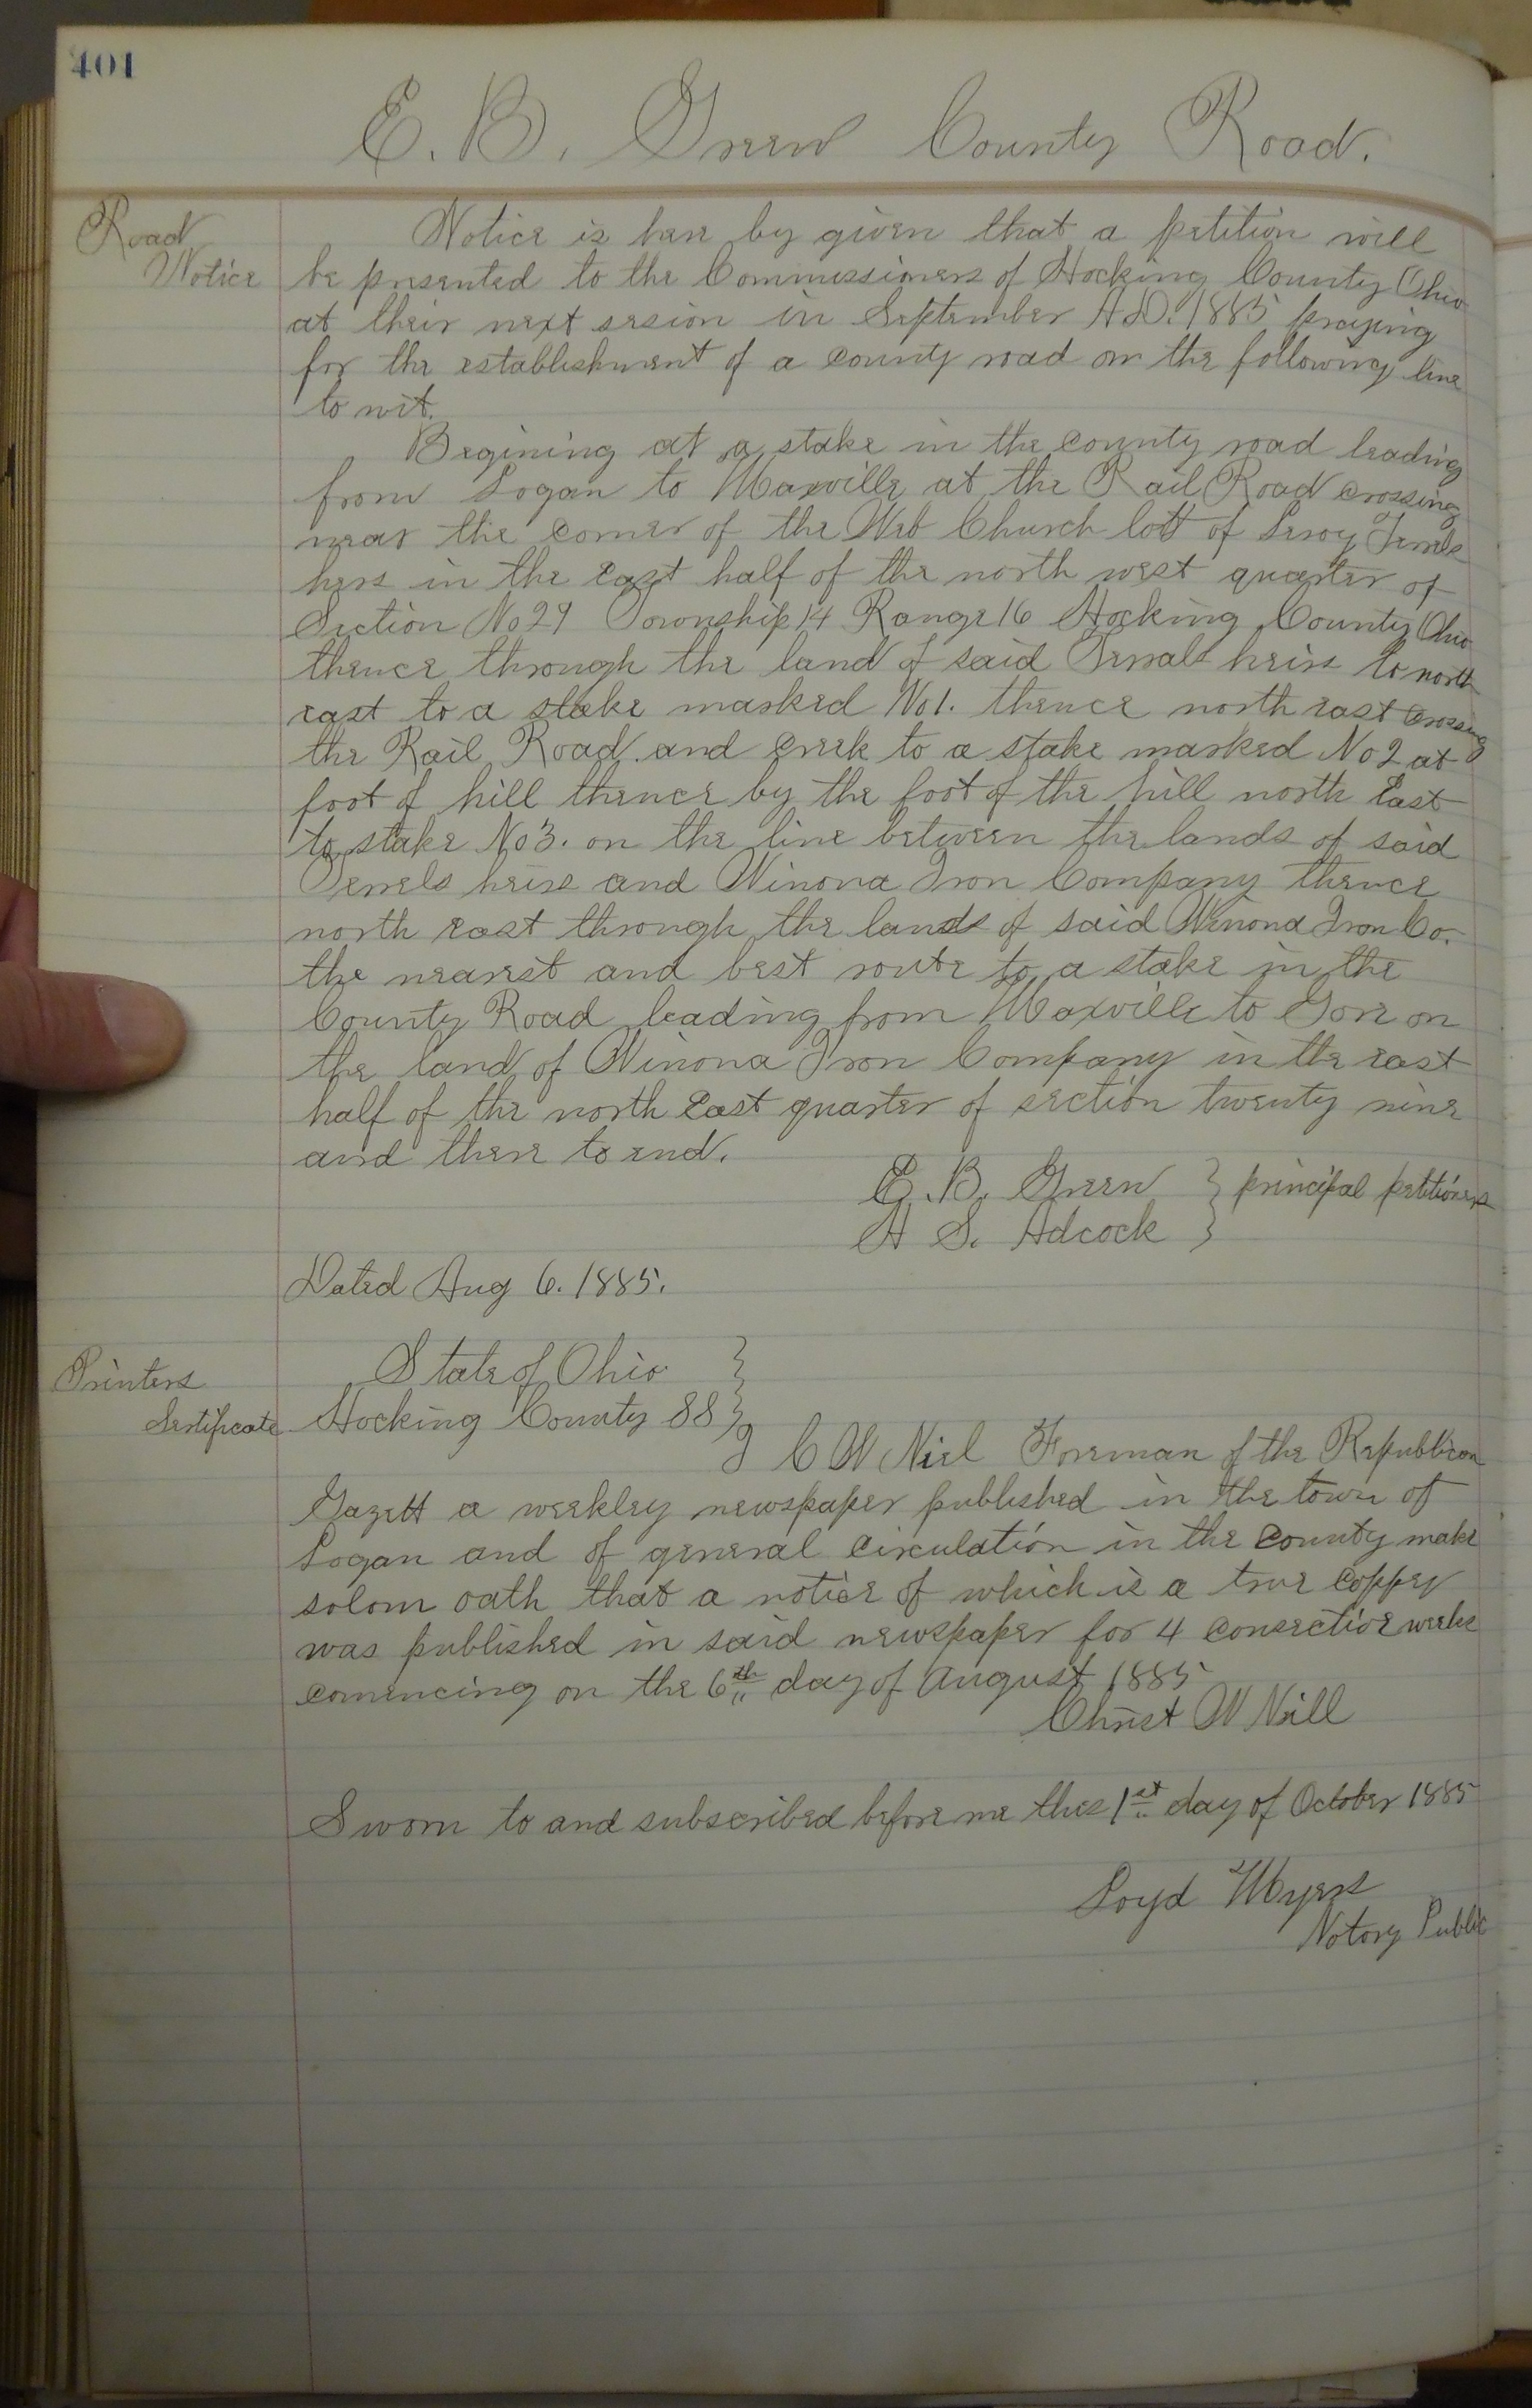 401
E. B. Green County Road.
Road
Notice
Notice is here by given that a petition will
be presented to the Commissioners of Hocking County Ohio
at their next sesion in September A.D. 1885 praying
for the establishment of a county road on the following line
to wit.
Begining at a stake in the county road leading
from Logan to Maxville at the Rail Road crossing
near the corner of the Church lott of Leroy
heirs in the east half of the north west quarter of
Section No 29 Township 14 Range 16 Hocking County Ohio
thence through the land of said heirs to north
east to a stake marked No 1. thence north east crossing
the Rail Road. and creek to a stake marked No 2 at
foot of hill thence by the foot of the hill north East
to stake No 3. on the line between the lands of said
heirs and Winona Iron Company thence
north east through the lands of said Winona Iron Co.
the nearest and best route to a stake in the
County Road leading from Maxville to Gore on
the land of Winona Iron Company in the east
half of the north East quarter of section twenty nine
and there to end.
E. B. Green } principal petitioners
A S. Adcock }
Dated Aug 6. 1885.
Printers
Sertificate
State of Ohio }
Hocking County SS }
I C W Niel Foreman of the Republican
Gazett a weekley newspaper published in the town of
Logan and of general circulation in the county make
solom oath that a notice of which is a true coppey
was published in said newspaper for 4 consective weeks
comencing on the 6th day of August 1885
Christ W Neill
Sworn to and subscribed before me thes 1st day of October 1885
Loyd Myers
Notory Public